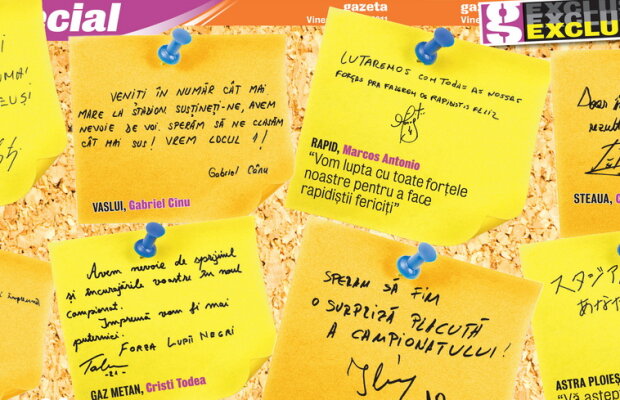 ecial
gazeta
Vine
g EXCLU
EXCLU
UMA!
EUȘI
VENIȚI ÎN NUMĂR CÂT MAI
MARE LA STADION, SUSȚINEȚI-NE, AVEM
NEVOIE DE VOI. SPERĂM SĂ NE CLASĂM
CÂT MAI SUS! VREM LOCUL 1!
Gabriel Cânu
VASLUI, Gabriel Cînu
LUTAREMOS COM TODAS AS NOSSAS
FORÇAS PRA FAZEREM OS RAPIDISTIS FELIZ
RAPID, Marcos Antonio
“Vom lupta cu toate forțele
noastre pentru a face
rapidiștii fericiți”
STEAUA, C
Avem nevoie de sprijinul
și încurajările voastre în noul
campionat.
Împreună vom fi mai
puternici.
FORZA LUPII NEGRI
GAZ METAN, Cristi Todea
SPERAM SĂ FIM
O SURPRIZĂ PLĂCUTĂ
A CAMPIONATULUI!
スタジア
ASTRA PLOIEȘ
“Vă aștep